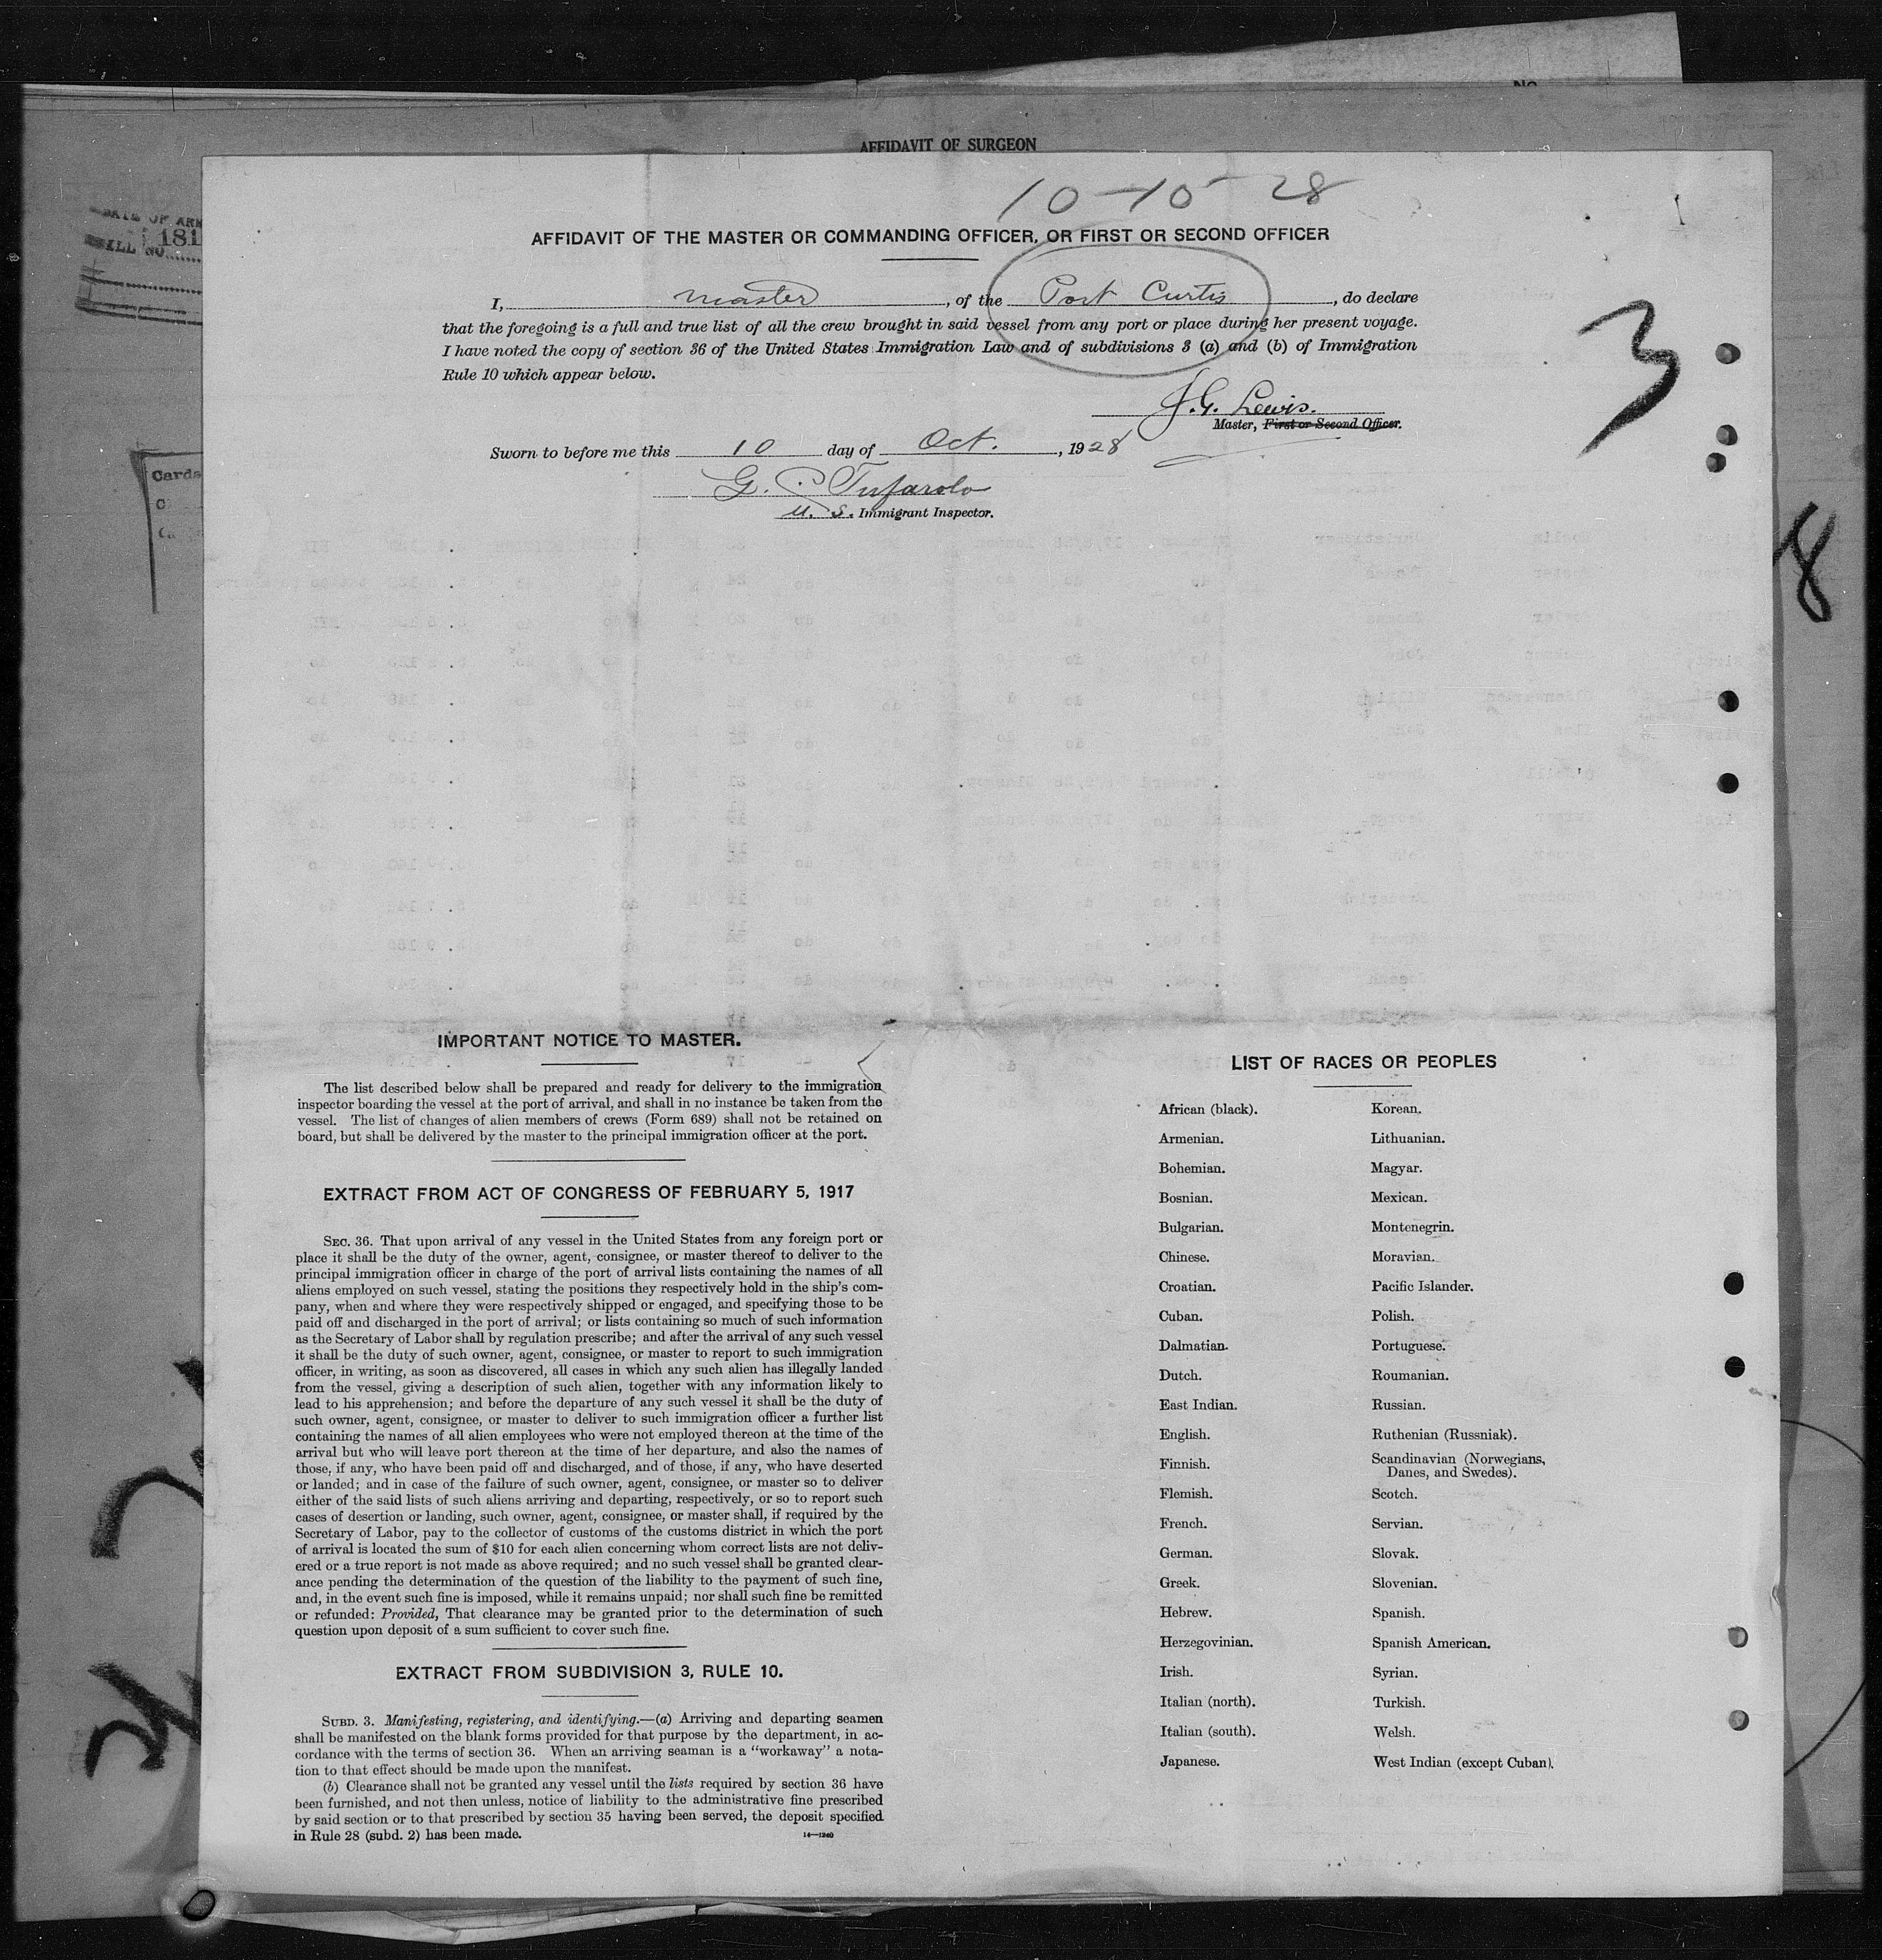 NO
AFFIDAVIT OF SURGEON
10-10-28
AFFIDAVIT OF THE MASTER OR COMMANDING OFFICER, OR FIRST OR SECOND OFFICER
I, master, of the Port Curtis, do declare
that the foregoing is a full and true list of all the crew brought in said vessel from any port or place during her present voyage.
I have noted the copy of section 36 of the United States Immigration Law and of subdivisions 3 (a) and (b) of Immigration
Rule 10 which appear below.
J.G. Lewis.
Master, First or Second Officer.
Sworn to before me this 10 day of Oct., 1928
G. P. Tufarolo
U. S. Immigrant Inspector.
3
8
DATE OF ARR
181
Cards
IMPORTANT NOTICE TO MASTER.
The list described below shall be prepared and ready for delivery to the immigration
inspector boarding the vessel at the port of arrival, and shall in no instance be taken from the
vessel. The list of changes of alien members of crews (Form 689) shall not be retained on
board, but shall be delivered by the master to the principal immigration officer at the port.
EXTRACT FROM ACT OF CONGRESS OF FEBRUARY 5, 1917
SEC. 36. That upon arrival of any vessel in the United States from any foreign port or
place it shall be the duty of the owner, agent, consignee, or master thereof to deliver to the
principal immigration officer in charge of the port of arrival lists containing the names of all
aliens employed on such vessel, stating the positions they respectively hold in the ship's com-
pany, when and where they were respectively shipped or engaged, and specifying those to be
paid off and discharged in the port of arrival; or lists containing so much of such information
as the Secretary of Labor shall by regulation prescribe; and after the arrival of any such vessel
it shall be the duty of such owner, agent, consignee, or master to report to such immigration
officer, in writing, as soon as discovered, all cases in which any such alien has illegally landed
from the vessel, giving a description of such alien, together with any information likely to
lead to his apprehension; and before the departure of any such vessel it shall be the duty of
such owner, agent, consignee, or master to deliver to such immigration officer a further list
containing the names of all alien employees who were not employed thereon at the time of the
arrival but who will leave port thereon at the time of her departure, and also the names of
those, if any, who have been paid off and discharged, and of those, if any, who have deserted
or landed; and in case of the failure of such owner, agent, consignee, or master so to deliver
either of the said lists of such aliens arriving and departing, respectively, or so to report such
cases of desertion or landing, such owner, agent, consignee, or master shall, if required by the
Secretary of Labor, pay to the collector of customs of the customs district in which the port
of arrival is located the sum of $10 for each alien concerning whom correct lists are not deliv-
ered or a true report is not made as above required; and no such vessel shall be granted clear-
ance pending the determination of the question of the liability to the payment of such fine,
and, in the event such fine is imposed, while it remains unpaid; nor shall such fine be remitted
or refunded: Provided, That clearance may be granted prior to the determination of such
question upon deposit of a sum sufficient to cover such fine.
EXTRACT FROM SUBDIVISION 3, RULE 10.
SUBD. 3. Manifesting, registering, and identifying.—(a) Arriving and departing seamen
shall be manifested on the blank forms provided for that purpose by the department, in ac-
cordance with the terms of section 36. When an arriving seaman is a "workaway" a nota-
tion to that effect should be made upon the manifest.
(b) Clearance shall not be granted any vessel until the lists required by section 36 have
been furnished, and not then unless, notice of liability to the administrative fine prescribed
by said section or to that prescribed by section 35 having been served, the deposit specified
in Rule 28 (subd. 2) has been made.
14—1240
LIST OF RACES OR PEOPLES
African (black).
Armenian.
Bohemian.
Bosnian.
Bulgarian.
Chinese.
Croatian.
Cuban.
Dalmatian.
Dutch.
East Indian.
English.
Finnish.
Flemish.
French.
German.
Greek.
Hebrew.
Herzegovinian.
Irish.
Italian (north).
Italian (south).
Japanese.
Korean.
Lithuanian.
Magyar.
Mexican.
Montenegrin.
Moravian.
Pacific Islander.
Polish.
Portuguese.
Roumanian.
Russian.
Ruthenian (Russniak).
Scandinavian (Norwegians,
Danes, and Swedes).
Scotch.
Servian.
Slovak.
Slovenian.
Spanish.
Spanish American.
Syrian.
Turkish.
Welsh.
West Indian (except Cuban).